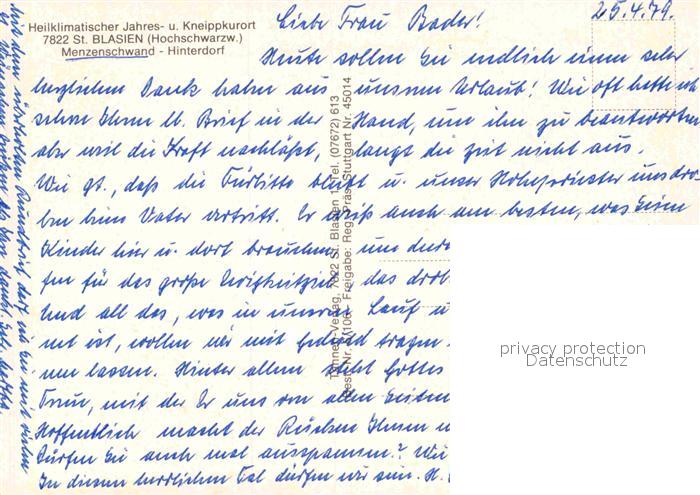 Heilklimatischer Jahres- u. Kneippkurort
7822 St. BLASIEN (Hochschwarzw.)
Menzenschwand - Hinterdorf
25.4.79.
Liebe Frau Bader!
Heute sollen Sie endlich einen sehr
herzlichen Dank haben aus unserem Urlaub! Wie oft hatte ich
schon Ihren lb. Brief in der Hand, um ihn zu beantworten
aber weil die Kraft nachläßt, langt die Zeit nicht aus.
Wie gt., daß die Fürbitte bleibt u. unser Hohepriester uns dro-
ben beim Vater vertritt. Er weiß auch am besten, was seine
Kinder hier u. dort brauchen, um
fen für das große Ewigkeitsziel, das
Und all das, was in unserem Lauf
met ist, wollen wir mit Geduld tragen
nen lassen. Hinter allem steht Gottes
Treue, mit der Er uns von allen Seiten
Hoffentlich macht der Rücken Ihnen
Dürfen Sie auch mal ausspannen? Wie
In diesem herrlichen Tal dürfen wir sein.
Tannen-Verlag, 7822 St. Blasien 1, Tel. (07672) 613
Freigabe: Reg. Präs. Stuttgart Nr. 45014
privacy protection
Datenschutz